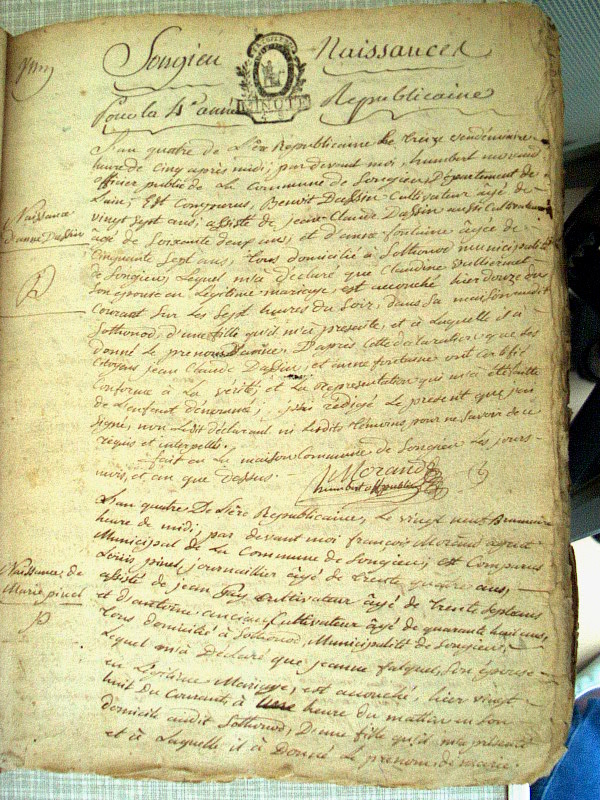 Songieu Naissances
MINUTE
Pour la 4e année Republicaine
L'an quatre de L'Ere Republicaine le treize vendemiaire
heure de cinq apres midi, par devant moi, humbert morand
officier public de La Commune de Songieu, Département de
L'ain, Est Comparus, Benoit Dassin Cultivateur agé de
vingt sept ans; assisté de jean Claude Dassin aussi Cultivateur
Naissance
d'anne Dassin
agé de soixante deux ans, et d'anne fontaine agée de
Cinquante sept ans, tous domicilié à Sothonod municipalité
de Songieu, Lequel m'a déclaré que Claudine Vulliermet
son épouse en Légitime mariage, est accouché hier douze du
Courant sur Les sept heures du soir, dans sa maison audit
Sothonod, d'une fille qu'il m'a presenté, et à Laquelle il a
donné Le prenom d'anne. D'après cette déclaration que les
Citoyens jean Claude Dassin, et anne fontaine ont certifié
Conforme à La vérité, et La Representation qui m'a été faitte
de L'enfant dénommé, j'ai rédigé Le present que j'ai
signé, non Ledit déclarant ni Lesdits temoins, pour ne savoir de ce
requis et interpellés.
fait en La maison Commune de Songieu Les jours
mois, et an que dessus.
Morand
humbert off public
L'an quatre De L'ère Republicaine, Le vingt neuf Brumaire
heure de midi, par devant moi françois Morand agent
Municipal de La Commune de Songieu, est Comparus
Louis pinel, journaillier âgé de trente quatre ans,
Naissance de
Marie pinel
assisté de jean Guy Cultivateur âgé de trente sept ans
et d'antoine ancian Cultivateur âgé de quarante huit ans,
tous domicilié à Sothonod, Municipalité de Songieu,
Lequel m'a Déclaré que jeanne falquet, son épouse
en Légitime Mariage, est accouché, hier vingt
huit Du Courant, à une heure du mattin en son
domicile audit Sothonod, D'une fille qu'il m'a présenté
et à Laquelle il à Donné Le prenom, de marie.